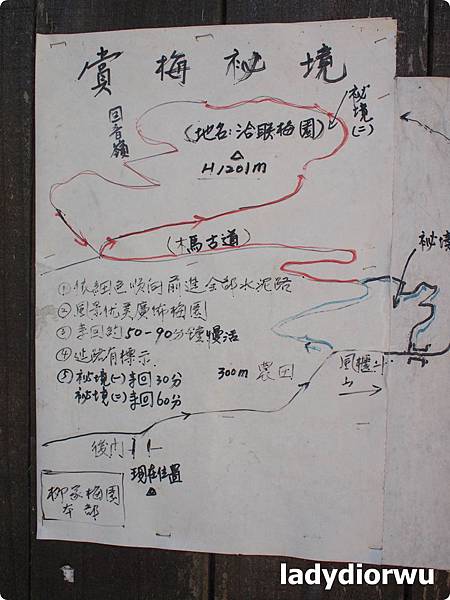 賞梅祕境
回音嶺
祕境(二)
(地名:洽联梅園)
H1201m
(木馬古道)
祕境
①依紅色順向前進全部水泥路
②風景优美廣桥梅園
③來回約50-90分鐘慢活
④迷路有標示
⑤祕境(一)來回30分
祕境(二)來回60分
300m 農田
風櫃斗
後門
現在位置
柳家梅園
本部
ladydiorwu